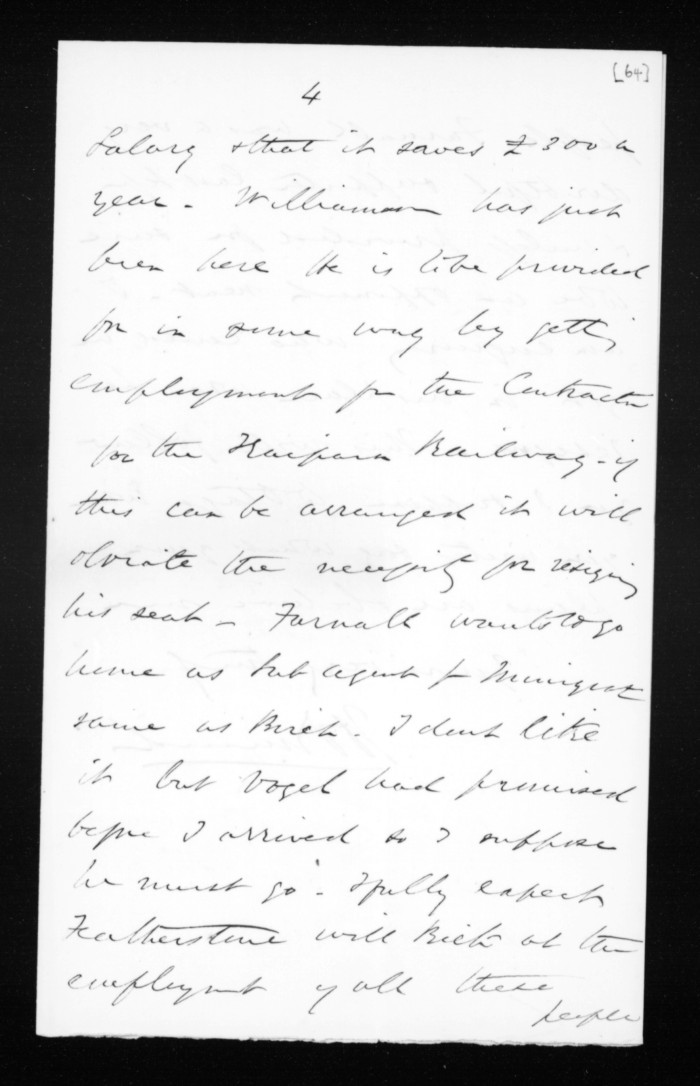 [64]
4
Salary & that it saves £300 a
year - Williamson has just
been here He is to be provided
for in some way by getting
employment for the Contractor
for the Kaipara Railway - if
this can be arranged it will
obviate the necessity for resigning
his seat - Farnall wants to go
home as Sub agent for Immigrat
same as Birch. I dont like
it but Vogel had promised
before I arrived so I suppose
he must go - I fully expect
Featherstone will Kick at the
employment of all these
people